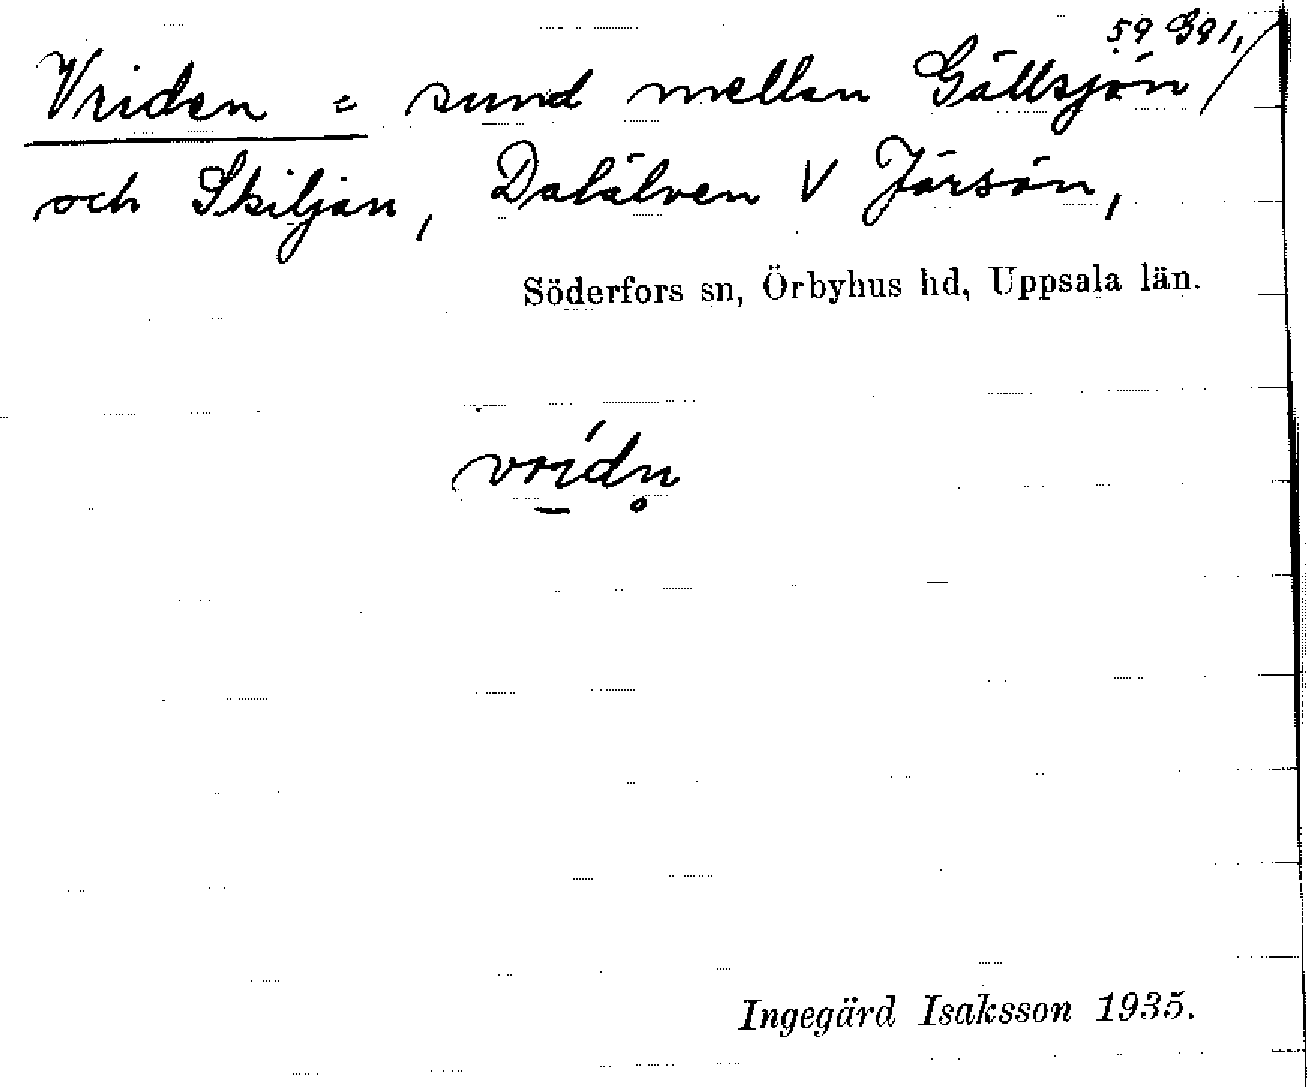 59 G91,
Vriden = sund mellan Gällsjön /
och Skiljan, Dalälven V Jörsön,
Söderfors sn, Örbyhus hd, Uppsala län.
vrídn̥
Ingegärd Isaksson 1935.